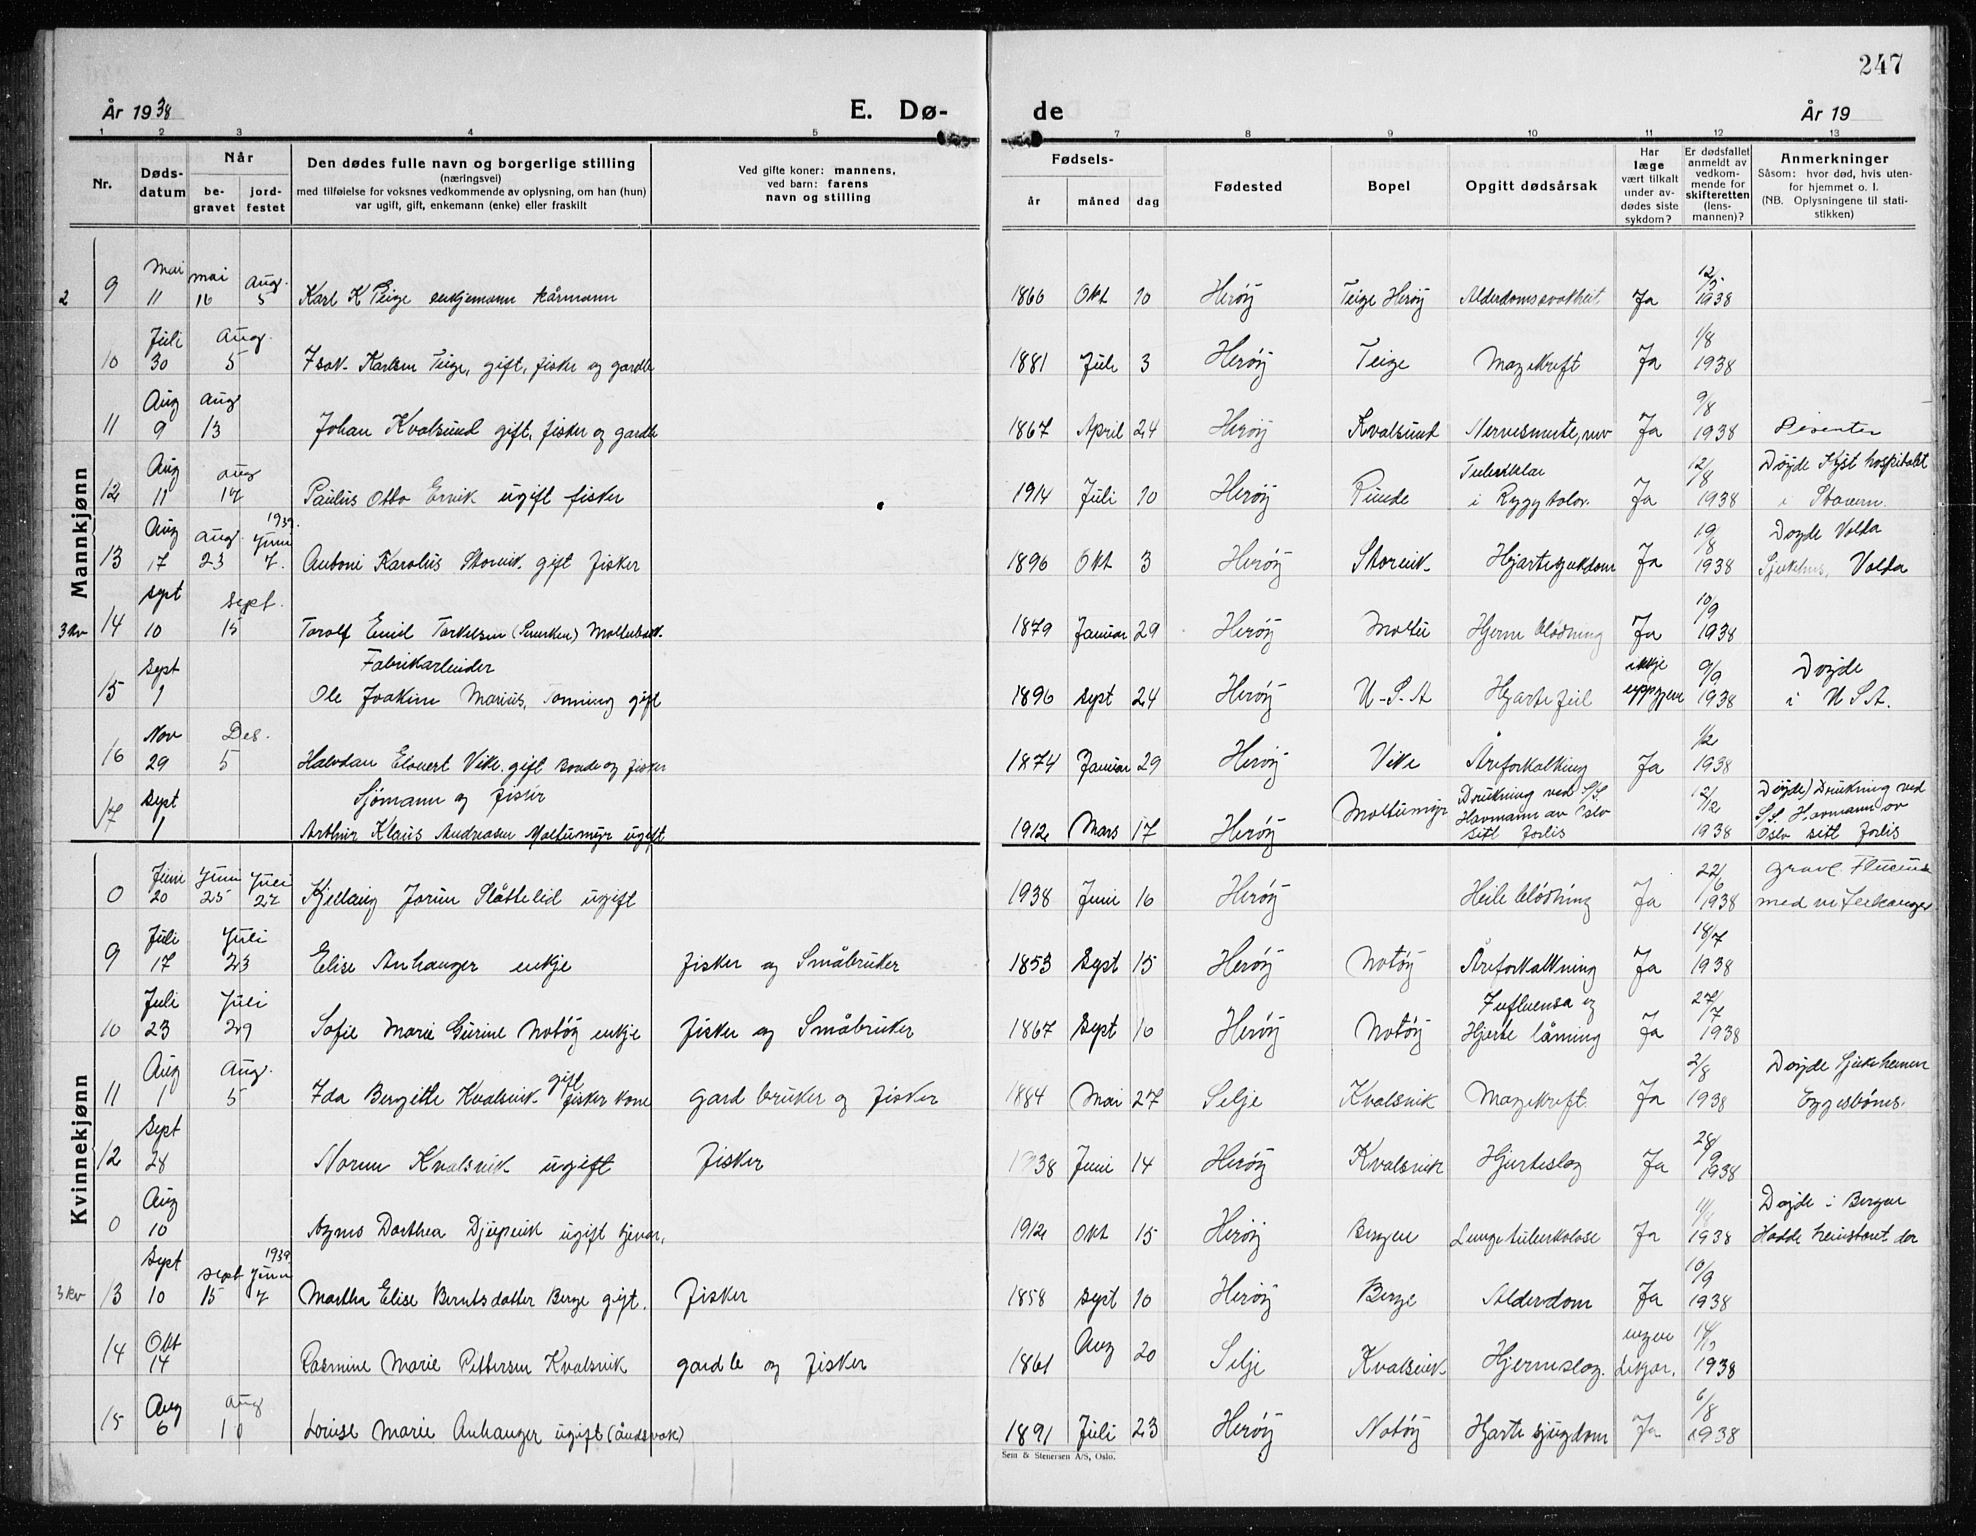 247
År 1938 E. Dø- de År 19
1 2 3 4 5 7 8 9 10 11 12 13
Nr.
Døds-
datum
Når
be-
gravet
jord-
festet
Den dødes fulle navn og borgerlige stilling
(næringsvei)
med tilføielse for voksnes vedkommende av oplysning, om han (hun)
var ugift, gift, enkemann (enke) eller fraskilt
Ved gifte koner: mannens,
ved barn: farens
navn og stilling
Fødsels-
år måned dag
Fødested
Bopel
Opgitt dødsårsak
Har
læge
vært tilkalt
under av-
dødes siste
sykdom?
Er dødsfallet
anmeldt av
vedkom-
mende for
skifteretten
(lens-
mannen)?
Anmerkninger
Såsom: hvor død, hvis uten-
for hjemmet o. l.
(NB. Oplysningene til stati-
stikken)
Mannkjønn
2 9 Mai 11 mai 16 Aug. 5 Karl K Teige enkjemann kårmann 1860 Okt 10 Herøy Teige Herøy Alderdomssvakheit Ja 12/5 1938
10 Juli 30 Aug. 5 Isak Karlsen Teige, gift, fisker og gardb 1881 Juli 3 Herøy Teige Magekreft Ja 1/8 1938
11 Aug 9 Aug 13 Johan Kvalsund gift, fisker og gardb 1867 April 24 Herøy Kvalsund Ja 9/8 1938
12 Aug 11 Aug 17 Paulus Otto Ervik ugift fisker 1914 Juli 10 Herøy Runde i Ja 12/8 1938 Døyde Kyst hospitalet
i Stavern
13 Aug 17 Aug. 23 1939. Juni 7. Antoni Karolus Storvik gift fisker 1896 Okt 3 Herøy Storvik Hjartesjukdom Ja 19/8 1938 Døyde Volda
Sjukehus, Volda
3 kv 14 Sept 10 Sept. 15 Torolf Emil Torkelsen Moltubakk. 1879 Januar 29 Herøy Moltu Hjerne blødning Ja 10/9 1938
Fabrikarbeider
15 Sept 1 Ole Joakim Marius, Tonning gift 1896 Sept 24 Herøy U-S-A Hjartefeil ikkje
uppgjeve 9/9 1938 Døyde
i USA.
16 Nov 29 Des. 5 Halvdan Elevert Vike. gift bonde og fisker 1874 Januar 29 Herøy Vike Åreforkalkning Ja 1/12 1938
Sjømann og fisker
17 Sept 1 Arthur Klaus Andreasen Moltumyr ugift 1912 Mars 17 Herøy Moltumyr Drukning ved S/S
Havmann av Oslo
sitt forlis 12/12 1938 Døyde) Drukning ved
S/S Havmann av
Oslo sitt forlis
Kvinnekjønn
0 Juni 20 Juni 25 Juli 27 Kjellaug Jorun Slåttelid ugift 1938 Juni 16 Herøy Heile blødning Ja 22/6 1938 gravl.
med
9 Juli 17 Juli 23 Elise Anhanger enkje fisker og Småbruker 1853 Sept 15 Herøy Notøy Åreforkalkning Ja 18/7 1938
10 Juli 23 Juli 29 Sofie Marie Gurine Notøy enkje fisker og Småbruker 1867 Sept 10 Herøy Notøy Influensa og
Hjerte låming Ja 27/7 1938
11 Aug 1 Aug. 5 Ida Bergitte Kvalsvik gift fisker kone gardbruker og fisker 1884 Mai 27 Selje Kvalsvik Magekreft. Ja 2/8 1938 Døyde Sjukeheimen
Eggesbønes.
12 Sept 28 Norun Kvalsvik ugift fisker 1938 Juni 14 Herøy Kvalsvik Hjarteslag Ja 28/9 1938
0 Aug 10 Agnes Dorthea Djupvik ugift tjenar, 1912 Okt 15 Herøy Bergen Lungetuberkolose Ja 1938 Døyde i Bergen
Hadde heimstaret der
3 kv 13 Sept 10 Sept 15 1939 Juni 7 Martha Elise Berntsdatter Berge gift. fisker 1858 Sept 10 Herøy Berge Alderdom Ja 10/9 1938
14 Okt 14 Rasmine Marie Pettersen Kvalsvik gardb og fisker 1861 Aug 20 Selje Kvalsvik Hjerneslag. ingen
Lækjar. 14/10 1938
15 Aug 6 Aug 10 Lovise Marie Anhanger ugift (åndsvak) 1891 Juli 23 Herøy Notøy Hjarte sjugdom Ja 6/8 1938
Sem & Stenersen A/S, Oslo.